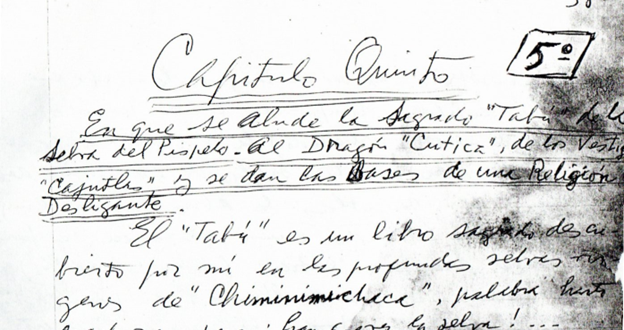 5º
Capitulo Quinto
En que se alude la sagrado "Tabú" de la
selva del Pispelo - al Dragón "Cutica", de los
"Cajutlis" y se dan las Bases de una Religion
Desligante.
El "Tabú" es un libro sagrado descu
bierto por mí en las profundas selvas
geros de "Chiminimichaca", palabra
la selva! ...